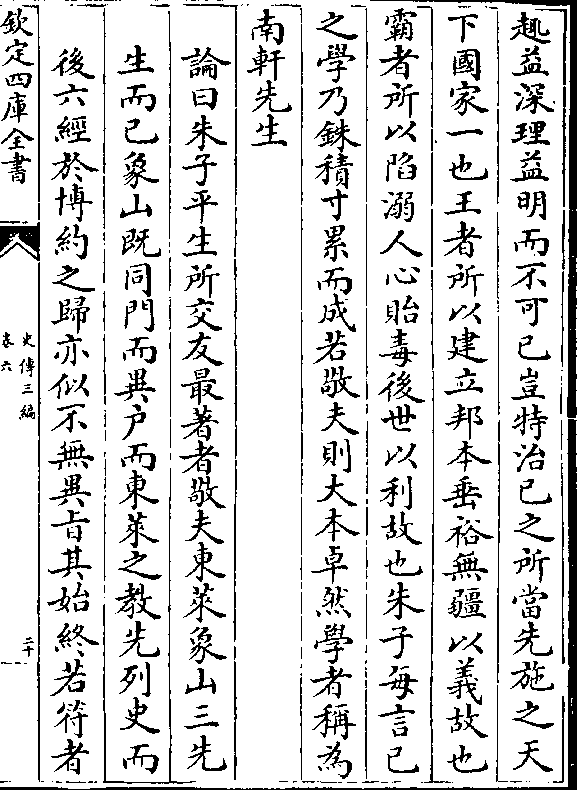 趣益深理益明而不可已豈特治己之所當先施之天
下國家一也王者所以建立邦本垂裕無疆以義故也
霸者所以陷溺人心貽毒後世以利故也朱子每言己
之學乃銖積寸累而成若敬夫則大本卓然學者稱為
南軒先生
論曰朱子平生所交友最著者敬夫東萊象山三先
生而已象山既同門而異户而東萊之教先列史而
後六經於博約之歸亦似不無異旨其始終若符者
欽定四庫全書
史傳三編
卷六
二十